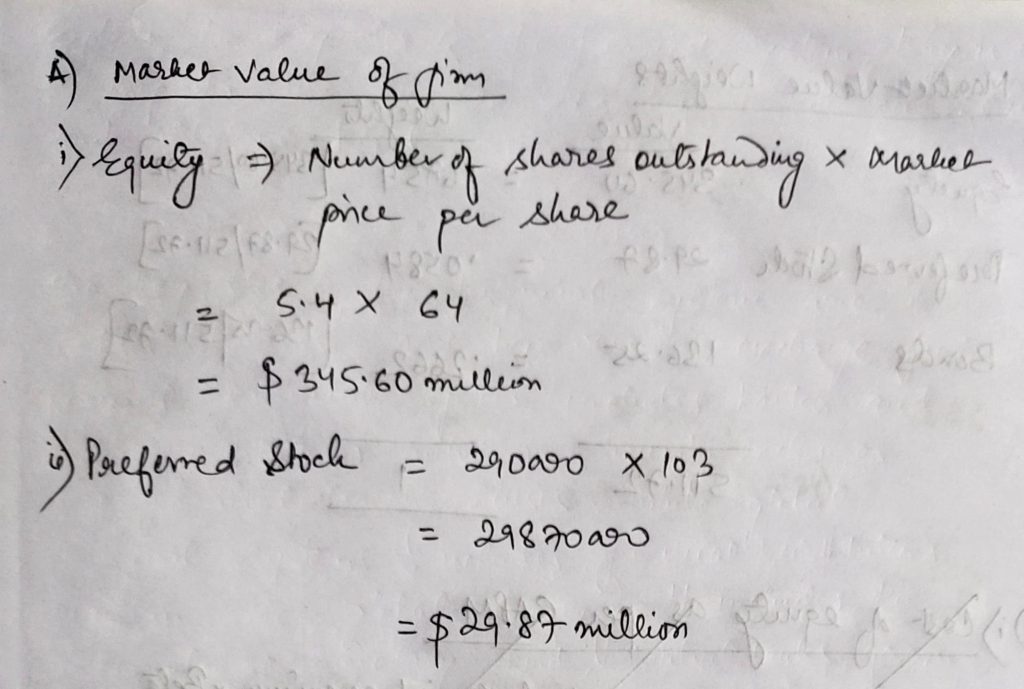 A) Market Value of firm
i) Equity ⇒ Number of shares outstanding × market
price per share
= 5.4 × 64
= $ 345.60 million
ii) Preferred Stock = 290000 × 103
= 29870000
= $ 29.87 million